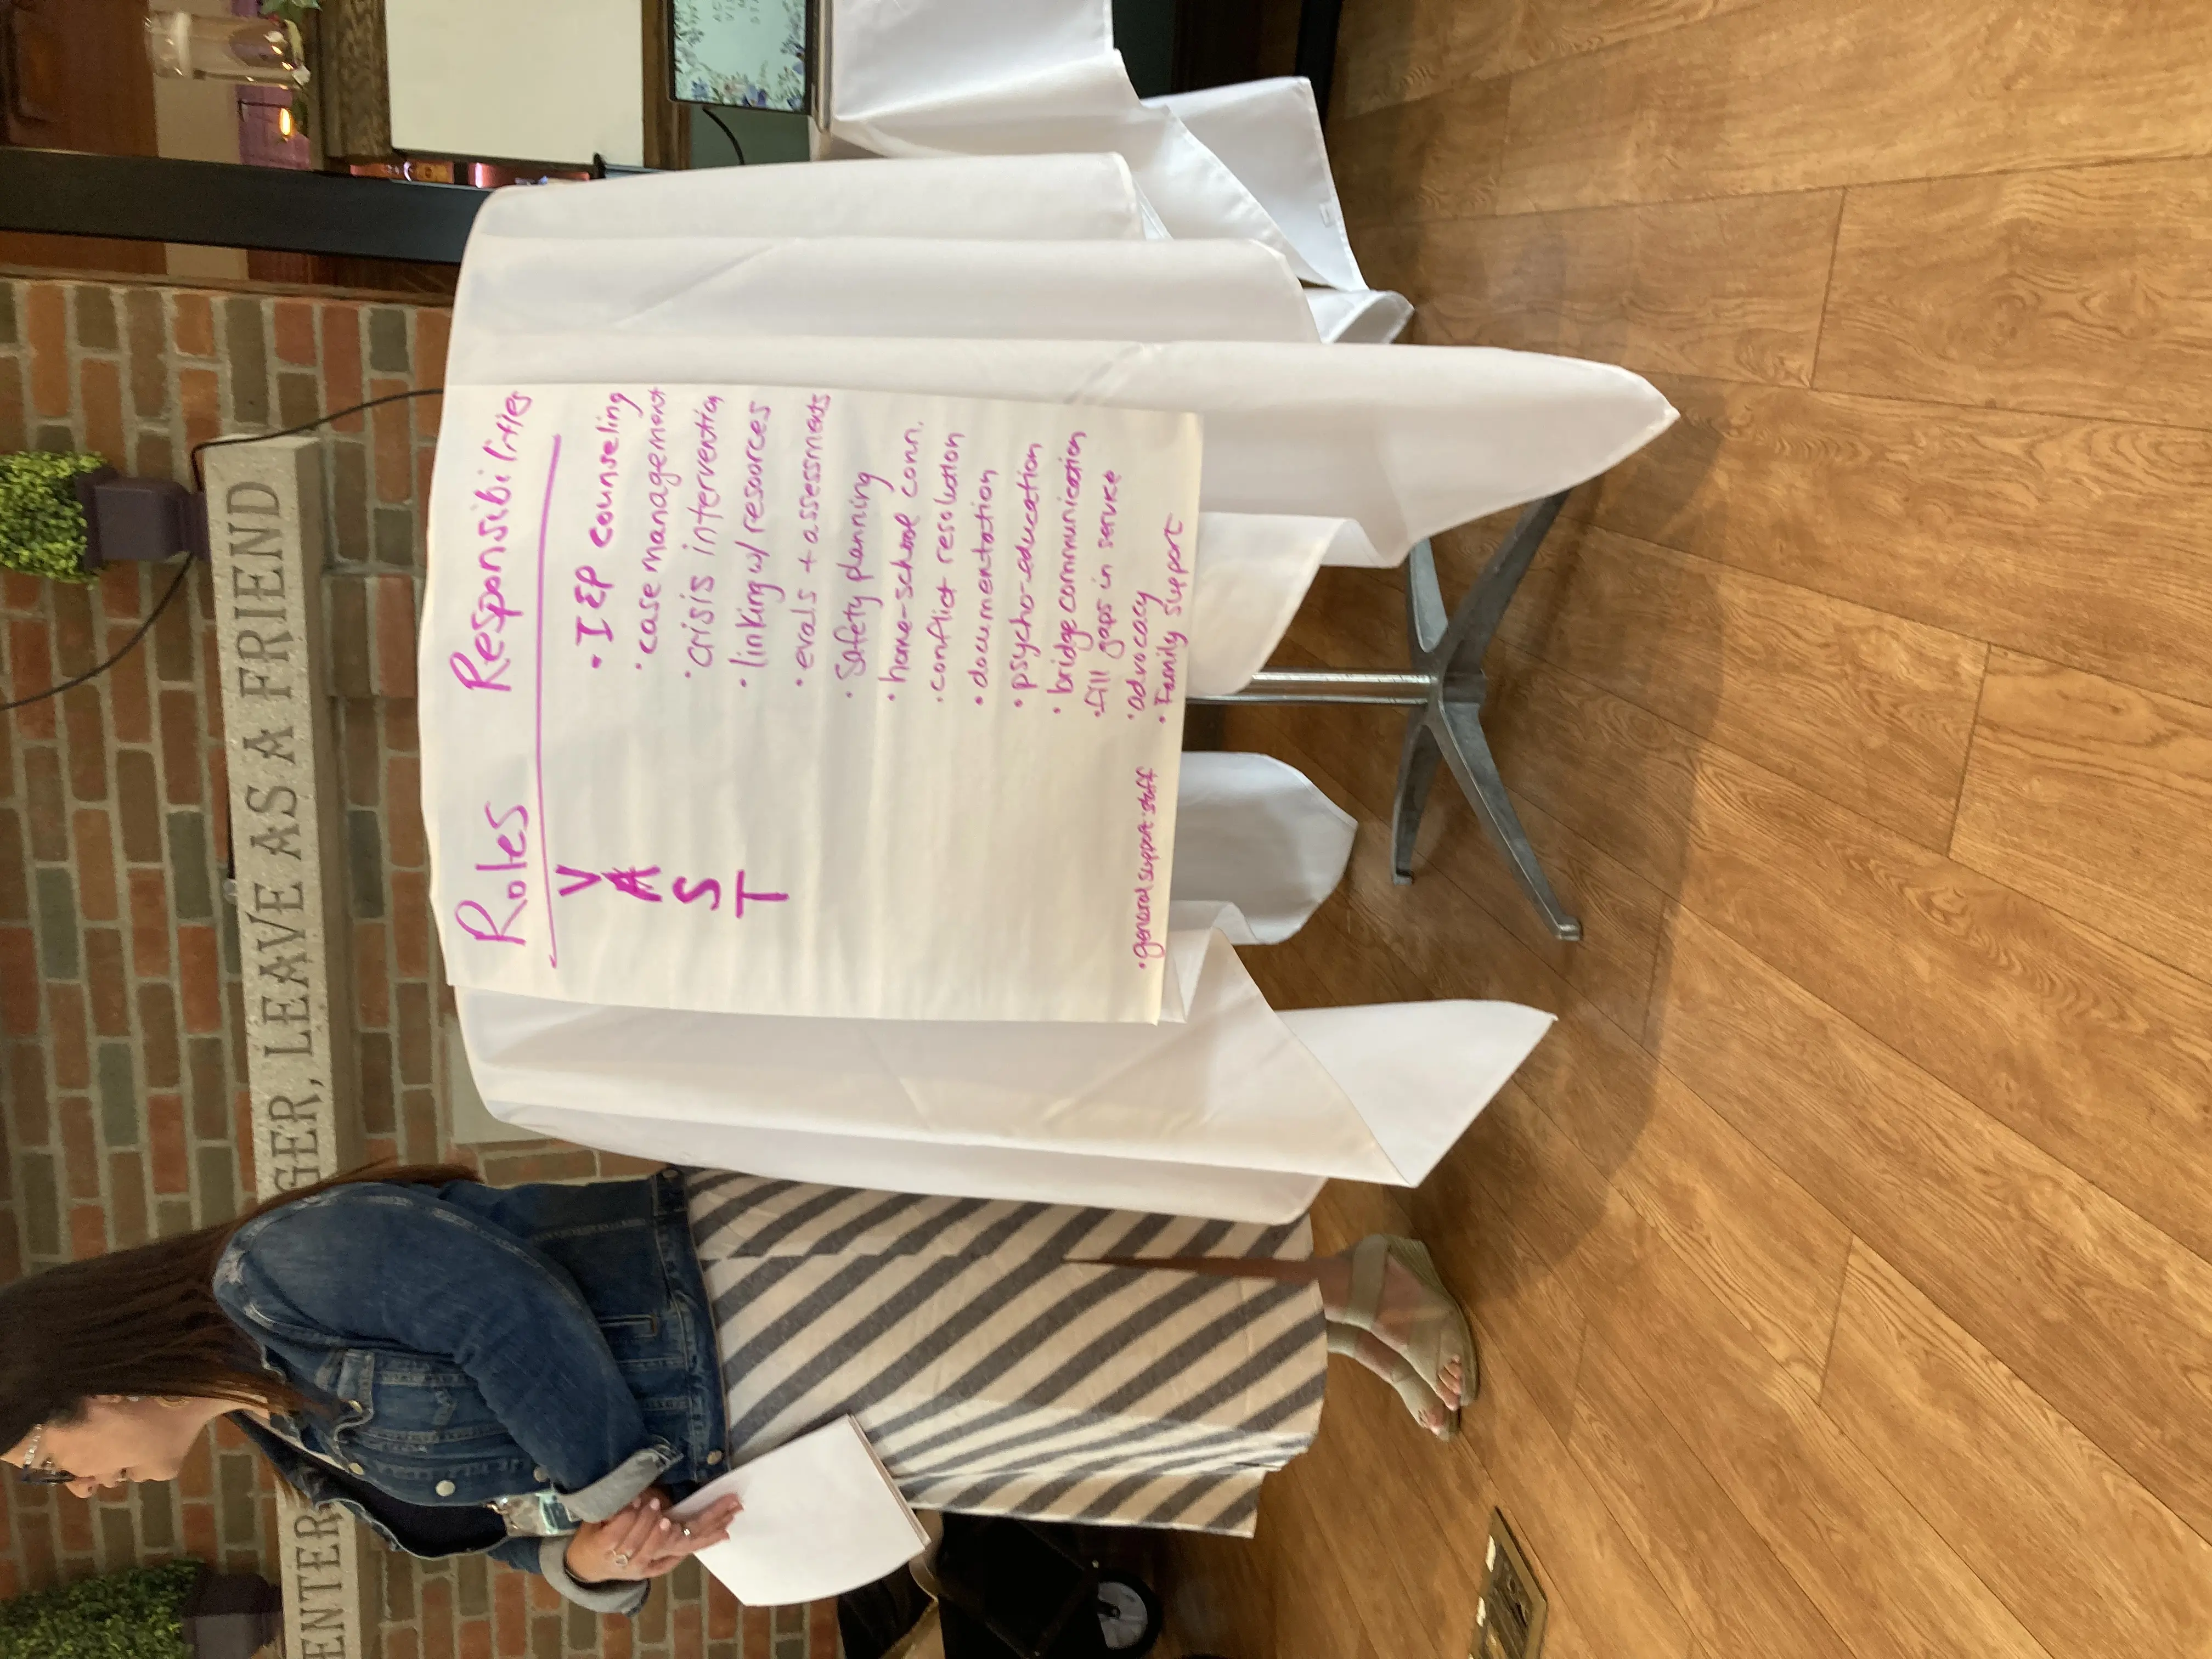 ENTER
GER, LEAVE AS A FRIEND
Roles Responsibilities
V
A
S
T
• general support staff
• IEP counseling
• case management
• crisis intervention
• linking w/ resources
• evals + assessments
• Safety planning
• home-school conn.
• conflict resolution
• documentation
• psycho-education
• bridge communication
• fill gaps in service
• advocacy
• Family support